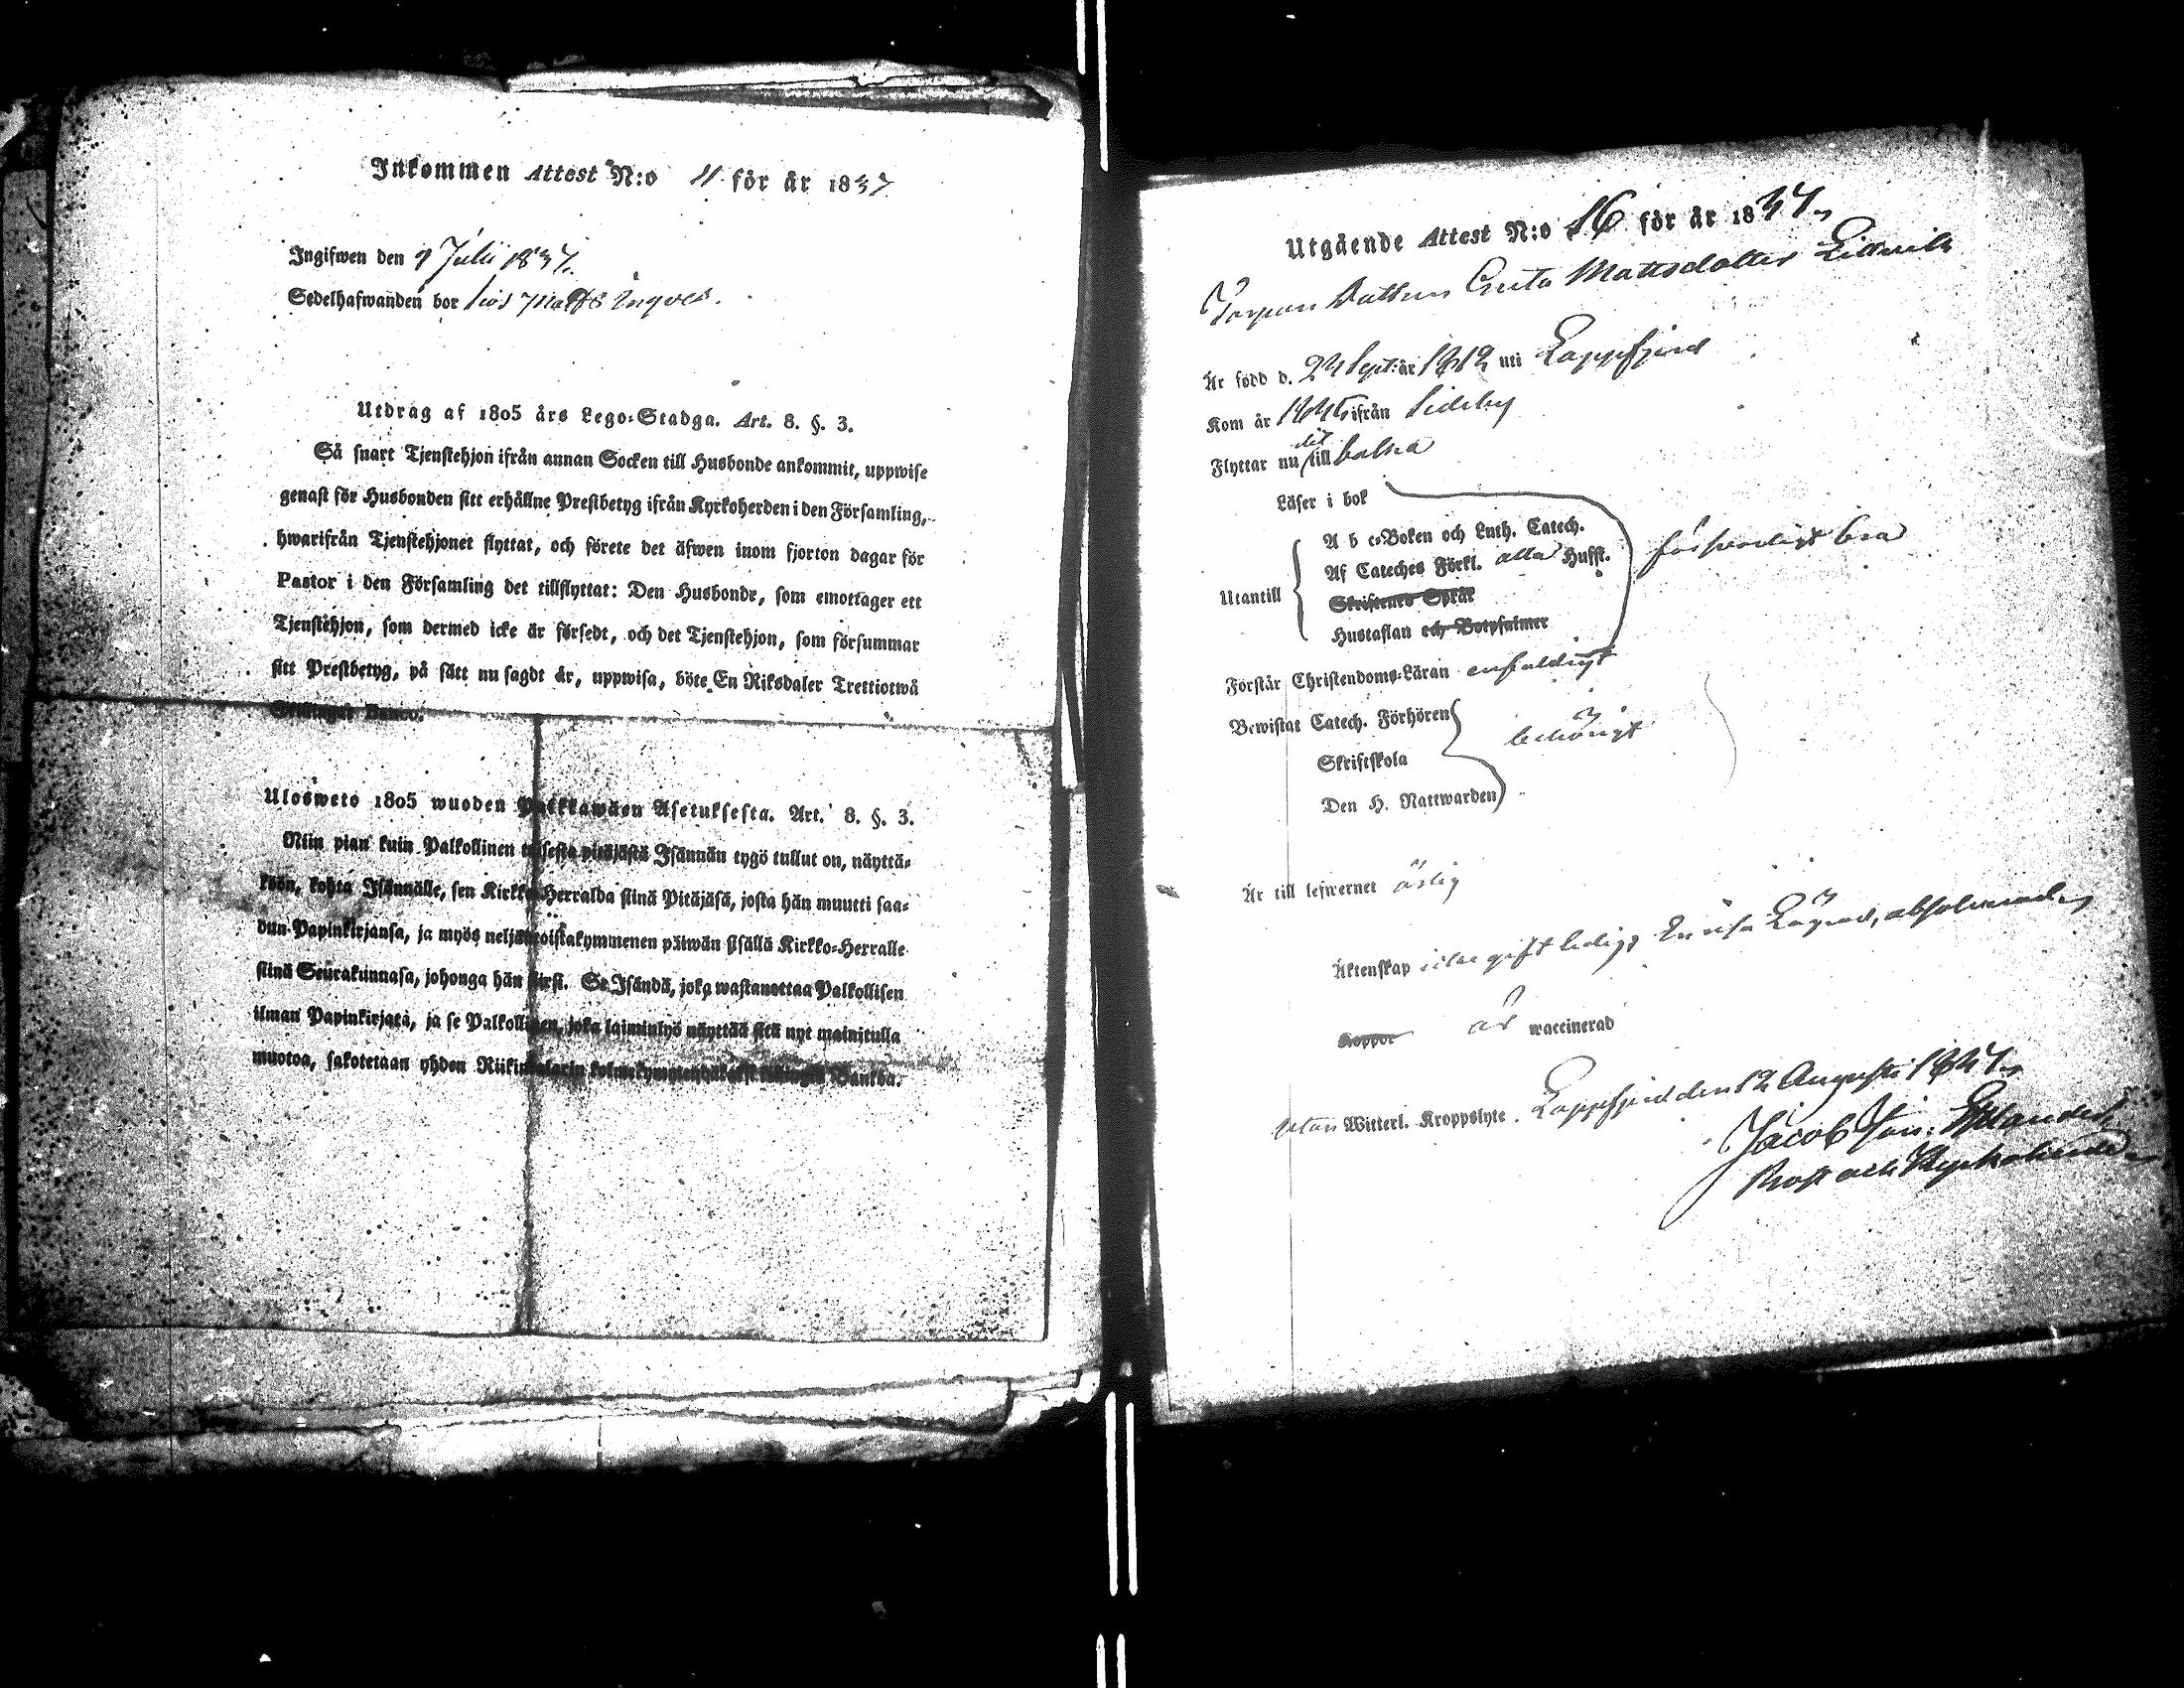 Inkommen Attest N:o 11 för år 1837
Ingifwen den 9 Julii 1837.
Sedelhafwanden bor hos Matts Ingves.
Utdrag af 1805 års Lego-Stadga. Art. 8. §. 3.
Så snart Tjenstehjon ifrån annan Socken till Husbonde ankommit, uppwise
genast för Husbonden sitt erhållne Prestbetyg ifrån Kyrkoherden i den Församling,
hwarifrån Tjenstehjonet flyttat, och förete det äfwen inom fjorton dagar för
Pastor i den Församling det tillflyttat: Den Husbonde, som emottager ett
Tjenstehjon, som dermed icke är försedt, och det Tjenstehjon, som försummar
sitt Prestbetyg, på sätt nu sagdt är, uppwisa, böte En Riksdaler Trettiotwå
Skillingar Banco.
Ulosweto 1805 wuoden Palkkawäen Asetuksesta. Art. 8. §. 3.
Niin pian kuin Palkollinen toisesta pitäjästä Isännän tygö tullut on, näyttä-
köön, kohta Isännälle, sen Kirkko-Herralda siinä Pitäjäsä, josta hän muutti saa-
dun Papinkirjansa, ja myös neljäntoistakymmenen päiwän sisällä Kirkko-Herralle
siinä Seurakunnasa, johonga hän siirsi. Se Isändä, joka wastanottaa Palkollisen
ilman Papinkirjata, ja se Palkollinen, joka laiminlyö näyttää sitä nyt mainitulla
muotoa, sakotetaan yhden Riikintalarin Bankoa.
Utgående Attest N:o 16 för år 1837.
Greta Mattsdotter
Är född d. 24 Sept: år 1812 uti Lappfjerd
Kom år ifrån Sideby
dit
Flyttar nu till baka
Läser i bok
A b c-Boken och Luth. Catech.
Af Cateches Förkl. alla Husst.
försvarligt bra
Utantill
Skriftenes Språk
Hustaflan och Botpsalmer
Förstår Christendoms-Läran enfaldigt
Bewistat Catech. Förhören
behörigt
Skriftskola
Den H. Nattwarden
Är till lefwernet ärlig
Äktenskap gift ledig, absolverad.
Koppor är waccinerad
utan Witterl. Kroppslyte. Lappfjerd den 12 Augusti 1837.
Jacob
Prost och Kyrkoherde